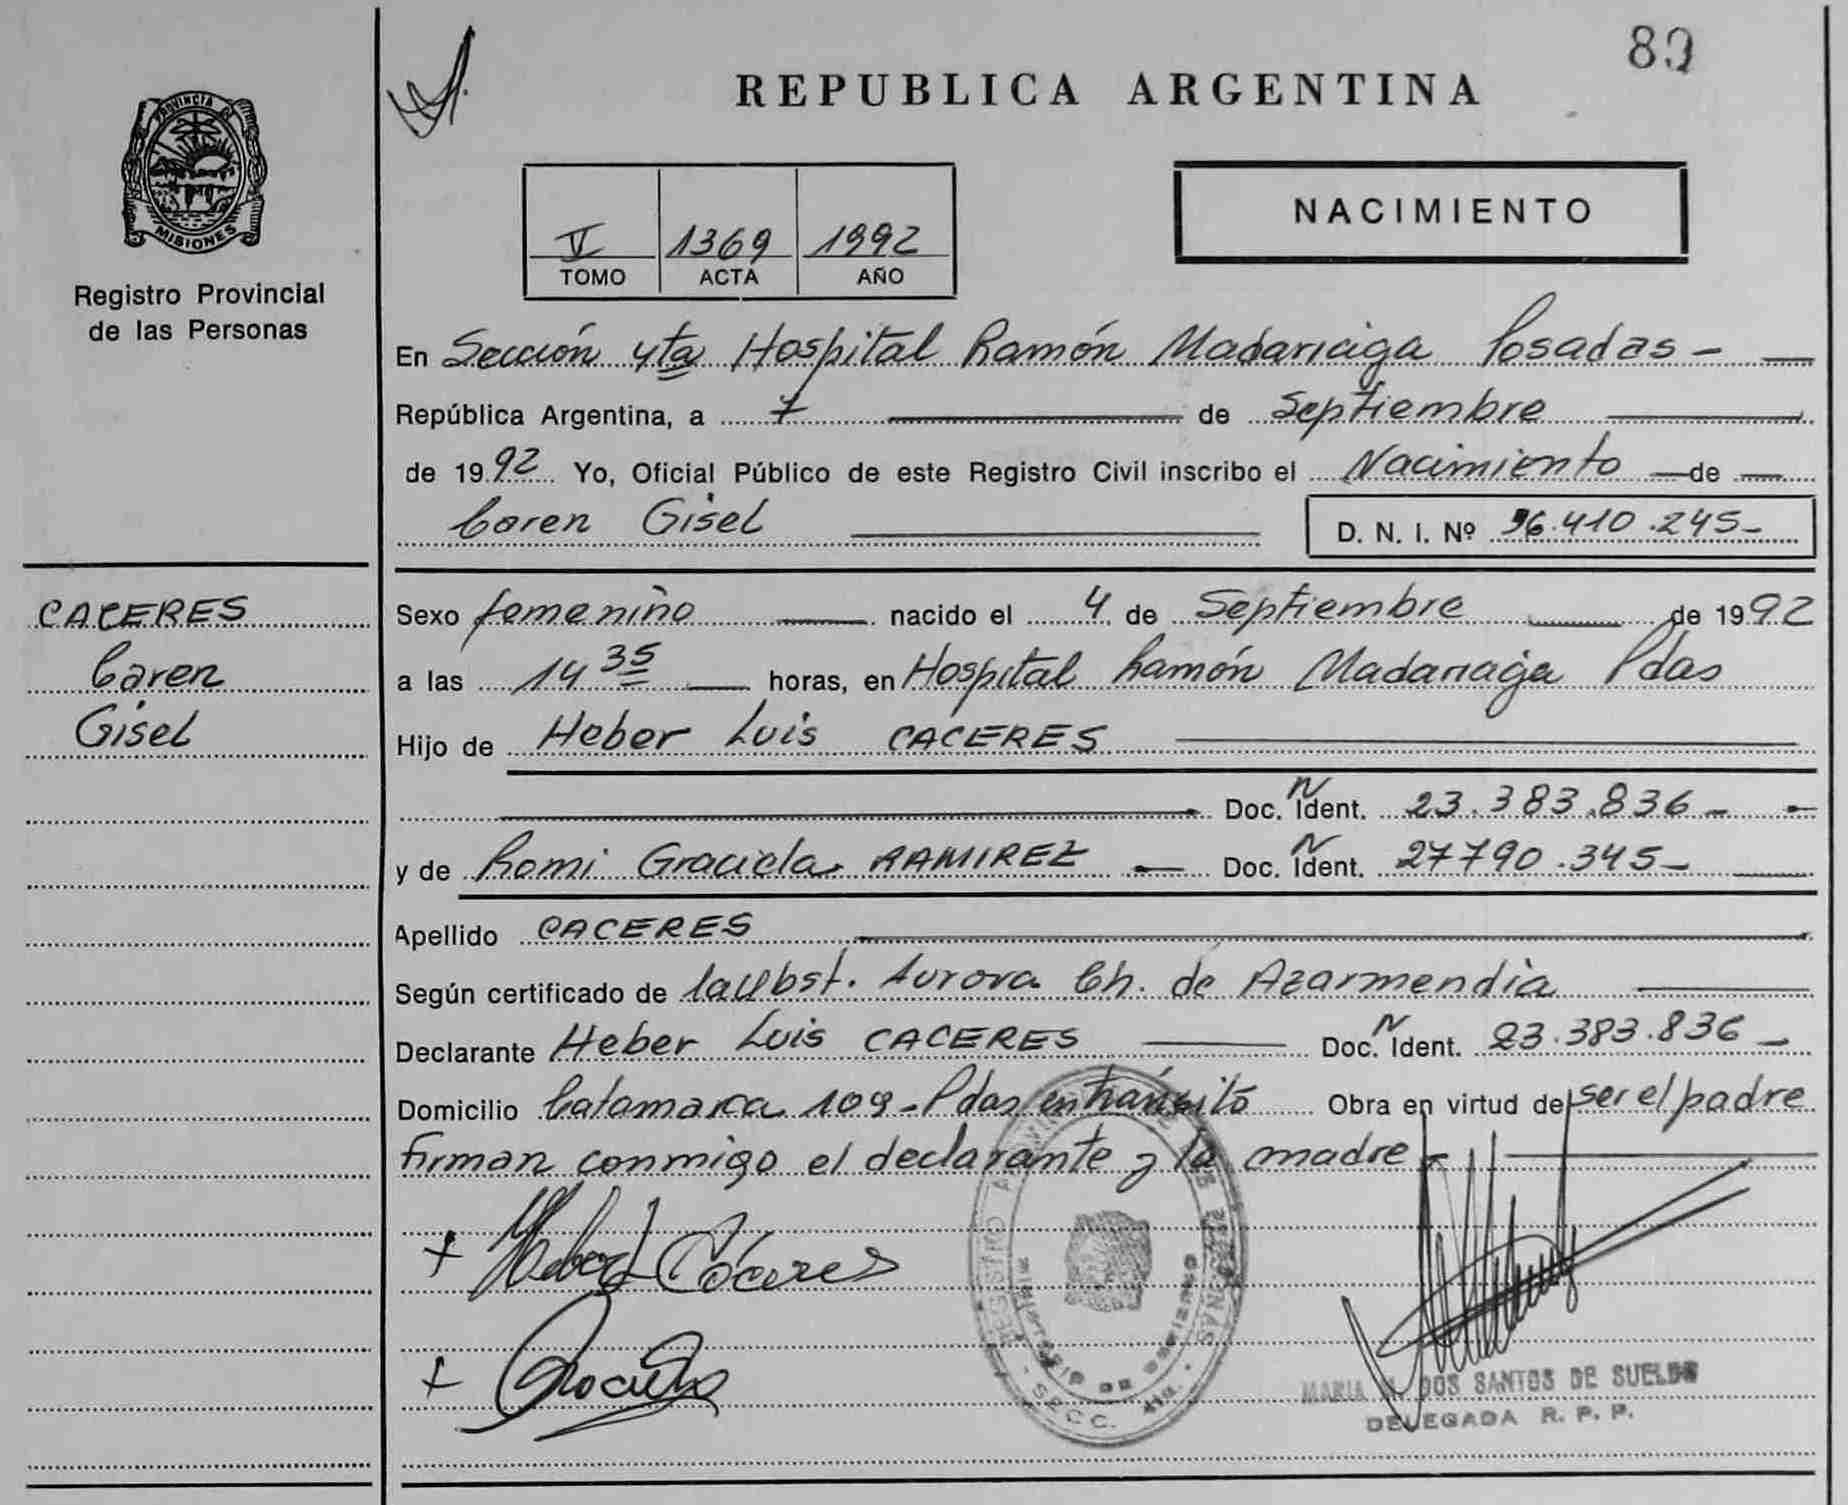 89
REPUBLICA ARGENTINA
PROVINCIA DE
MISIONES
Registro Provincial
de las Personas
V 1369 1992
TOMO ACTA AÑO
NACIMIENTO
En Sección 4ta Hospital Ramón Madariaga Posadas -
República Argentina, a 7 de Septiembre
de 1992 Yo, Oficial Público de este Registro Civil inscribo el Nacimiento de
Caren Gisel
D. N. I. Nº 36.410.245-
CACERES
Caren
Gisel
Sexo femenino nacido el 4 de Septiembre de 1992
a las 14 35 horas, en Hospital Ramón Madariaga Pdas
Hijo de Heber Luis CACERES
Doc. N Ident. 23.383.836-
y de Romi Graciela RAMIREZ - Doc. N Ident. 27790.345-
Apellido CACERES
Según certificado de la Obst. Aurora Ch. de Azarmendia
Declarante Heber Luis CACERES Doc. N Ident. 23.383.836-
Domicilio Catamarca 109 - Pdas en tránsito Obra en virtud de ser el padre
firman conmigo el declarante y la madre -
+ Heber L Cáceres
+
REGISTRO PROVINCIAL DE LAS PERSONAS
MINISTERIO DE GOBIERNO
- SECC. 4ta. -
MARIA DOS SANTOS DE SUELDO
DELEGADA R. P. P.